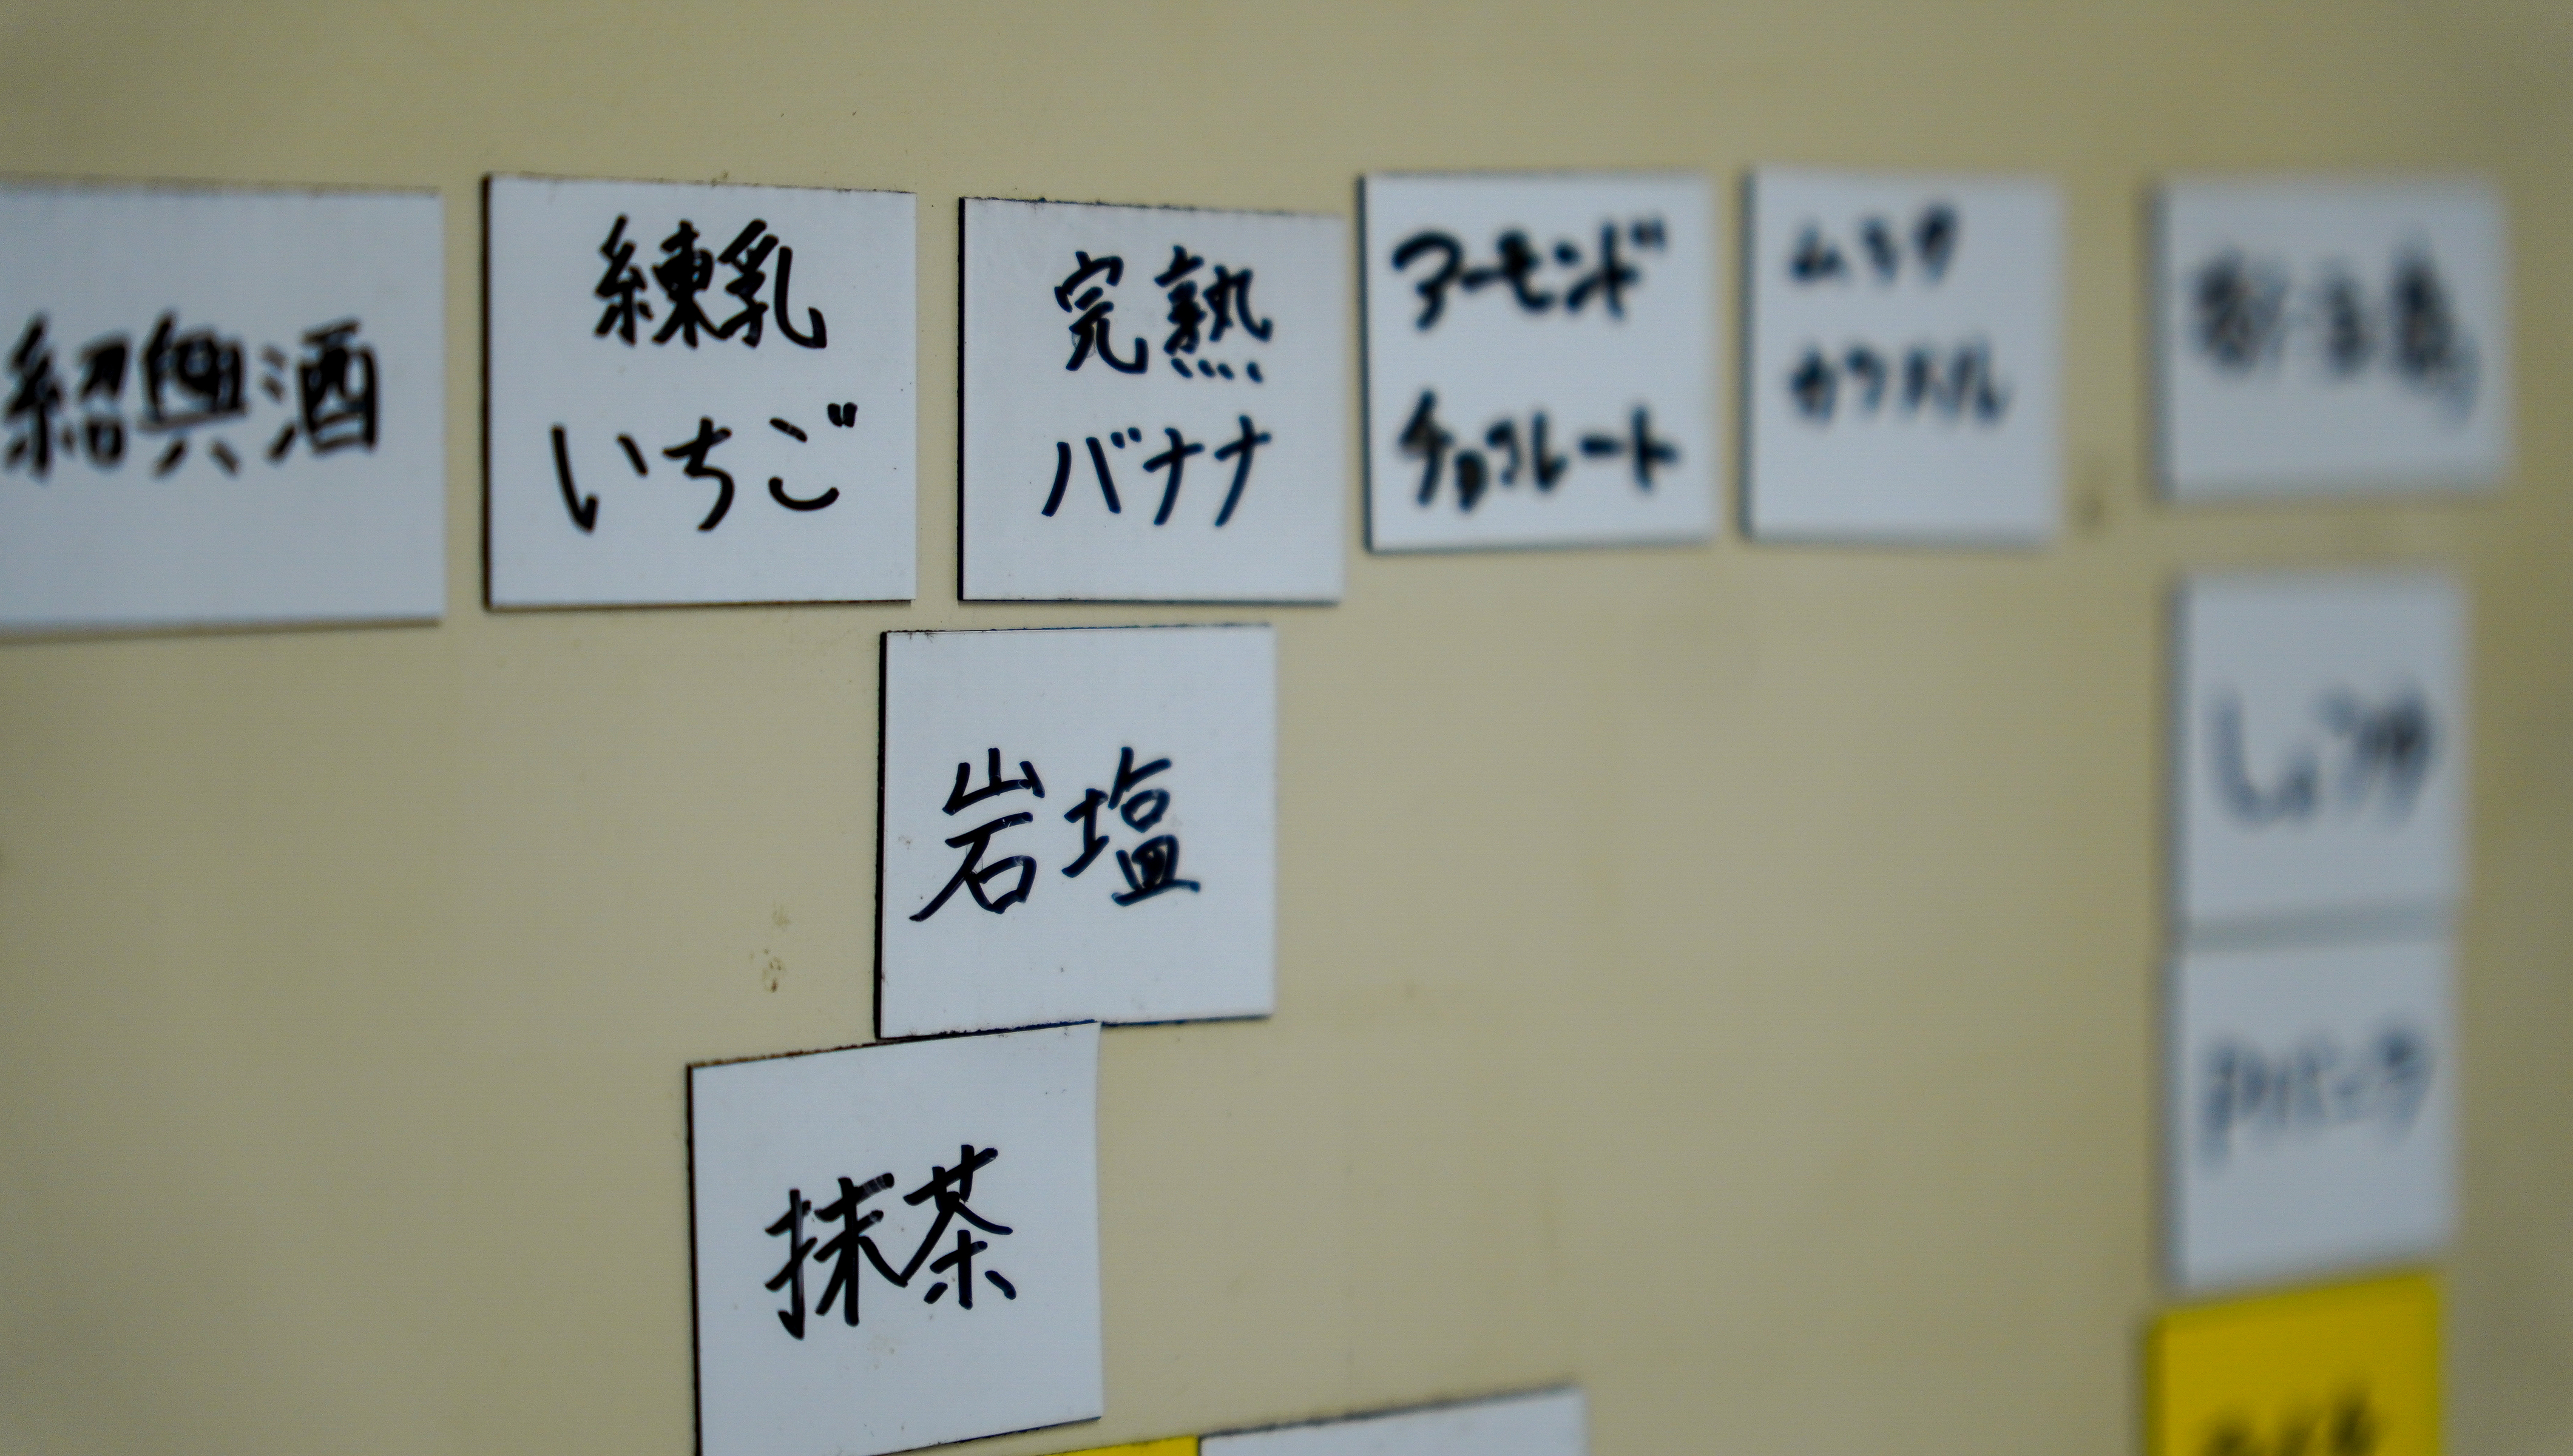 紹興酒
練乳
いちご
完熟
バナナ
アーモンド
チョコレート
ミルク
カラメル
岩塩
抹茶
しょうが